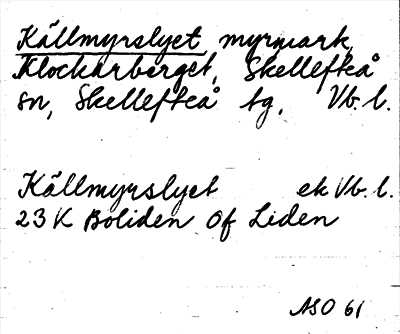 Källmyrslyet myrmark,
Klockarberget, Skellefteå
sn, Skellefteå tg, Vb. l.
Källmyrslyet ek Vb. l.
23 K Boliden Of Liden
ASO 61